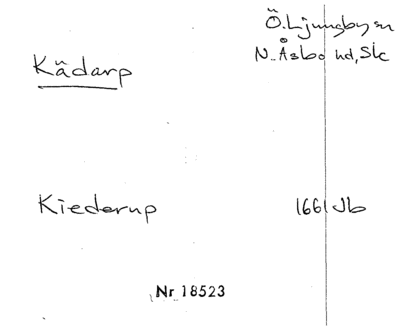 Ö. Ljungby sn
Kädarp
N. Åsbo hd, Sk
Kiederup 1661 Jb
Nr 18523